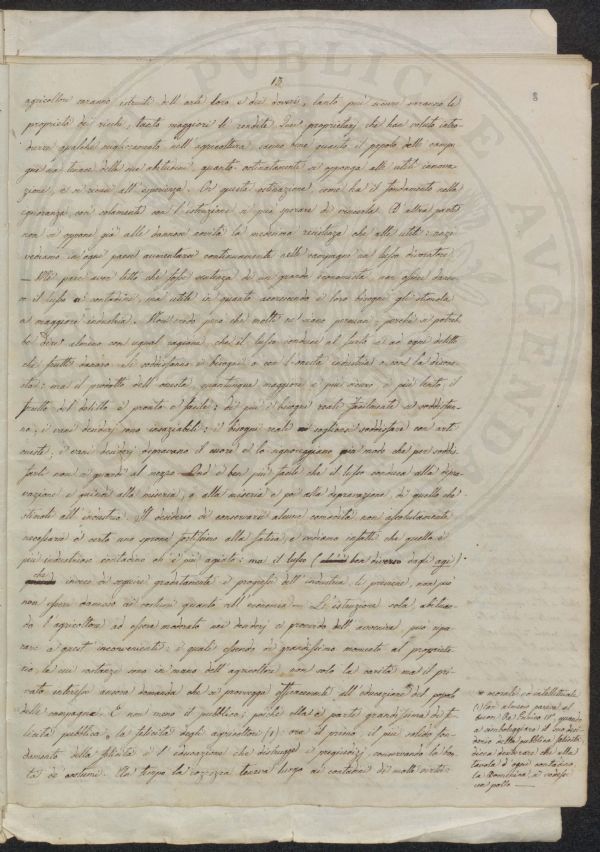 13
8
agricoltori saranno istruiti dell'arte loro e dei doveri, tanto più sicure saranno le
proprietà dei ricchi, tanto maggiori le rendite. Quei proprietarj che han voluto intro-
durre qualche miglioramento nell'agricoltura, sanno bene quanto il popolo delle campa-
gne sia tenace delle sue abitudini, quanto ostinatamente si opponga alle utili innova-
zioni, e si ricusi all'esperienza. Or questa ostinazione, come ha il fondamento nella
ignoranza, così solamente con l'istruzione si può sperare di vincerla. D'altra parte
non si oppone già alle dannose novità la medesima resistenza che alle utili: anzi
vediamo in ogni paese aumentarsi continuamente nelle campagne un lusso divoratore
— Mi pare aver letto che fosse sentenza di un grande economista, non essere danno-
so il lusso a' contadini, ma utile in quanto accrescendo i loro bisogni gli stimola
a maggiore industria. Non credo però che molti ne siano persuasi: perchè si potreb-
be dire almeno con ugual ragione, che il lusso conduce al furto e ad ogni delitto
che frutti danaro. Si soddisfanno i bisogni o con l'onesta industria o con la disone-
stà: ma il prodotto dell'onestà, quantunque maggiore e più sicuro, è più lento; il
frutto del delitto è pronto e facile: di più i bisogni reali facilmente si soddisfan-
no, i vani desiderj sono insaziabili: i bisogni reali si vogliono soddisfare con arti
oneste, i vani desiderj depravano il cuore e lo signoreggiano in modo che per soddi-
sfarli non si guarda al mezzo. Ond'è ben più facile che il lusso conduca alla depra-
vazione e quindi alla miseria, o alla miseria e poi alla depravazione, di quello che
stimoli all'industria. Il desiderio di conservarsi alcune comodità non assolutamente
necessarie è certo uno sprone fortissimo alla fatica, e vediamo infatti che quello è
più industrioso contadino ch'è più agiato: ma il lusso (ben diverso dagli agi)
che invece di seguire gradatamente i progressi dell'industria li previene, non può
non essere dannoso ai costumi quanto all'economia — L'istruzione sola, abituan-
do l'agricoltore ad essere moderato nei desiderj e provvido dell'avvenire, può ripa-
rare a quest'inconveniente: i quali essendo di grandissimo momento al proprieta-
rio, le cui sostanze sono in mano dell'agricoltore, non solo la carità ma il pri-
vato interesse ancora domanda che si provvegga efficacemente all'educazione del popolo
delle campagne. E non meno il pubblico; poichè ella è parte grandissima di fe-
licità pubblica, la felicità degli agricoltori (1); ora il primo, il più solido fon-
damento della felicità è l'educazione che distrugge i pregiudizj, conservando la bon-
tà de' costumi. Un tempo la rozzezza teneva luogo ai contadini di molte virtù:
* morale ed intellettuale
(1) Così almeno pareva al
buon Re Enrico IV, quando
a simboleggiare il suo desi-
derio della pubblica felicità
diceva desiderare che alla
tavola d'ogni contadino,
la Domenica, si vedesse
un pollo —
PVBLICAE AVGENDA